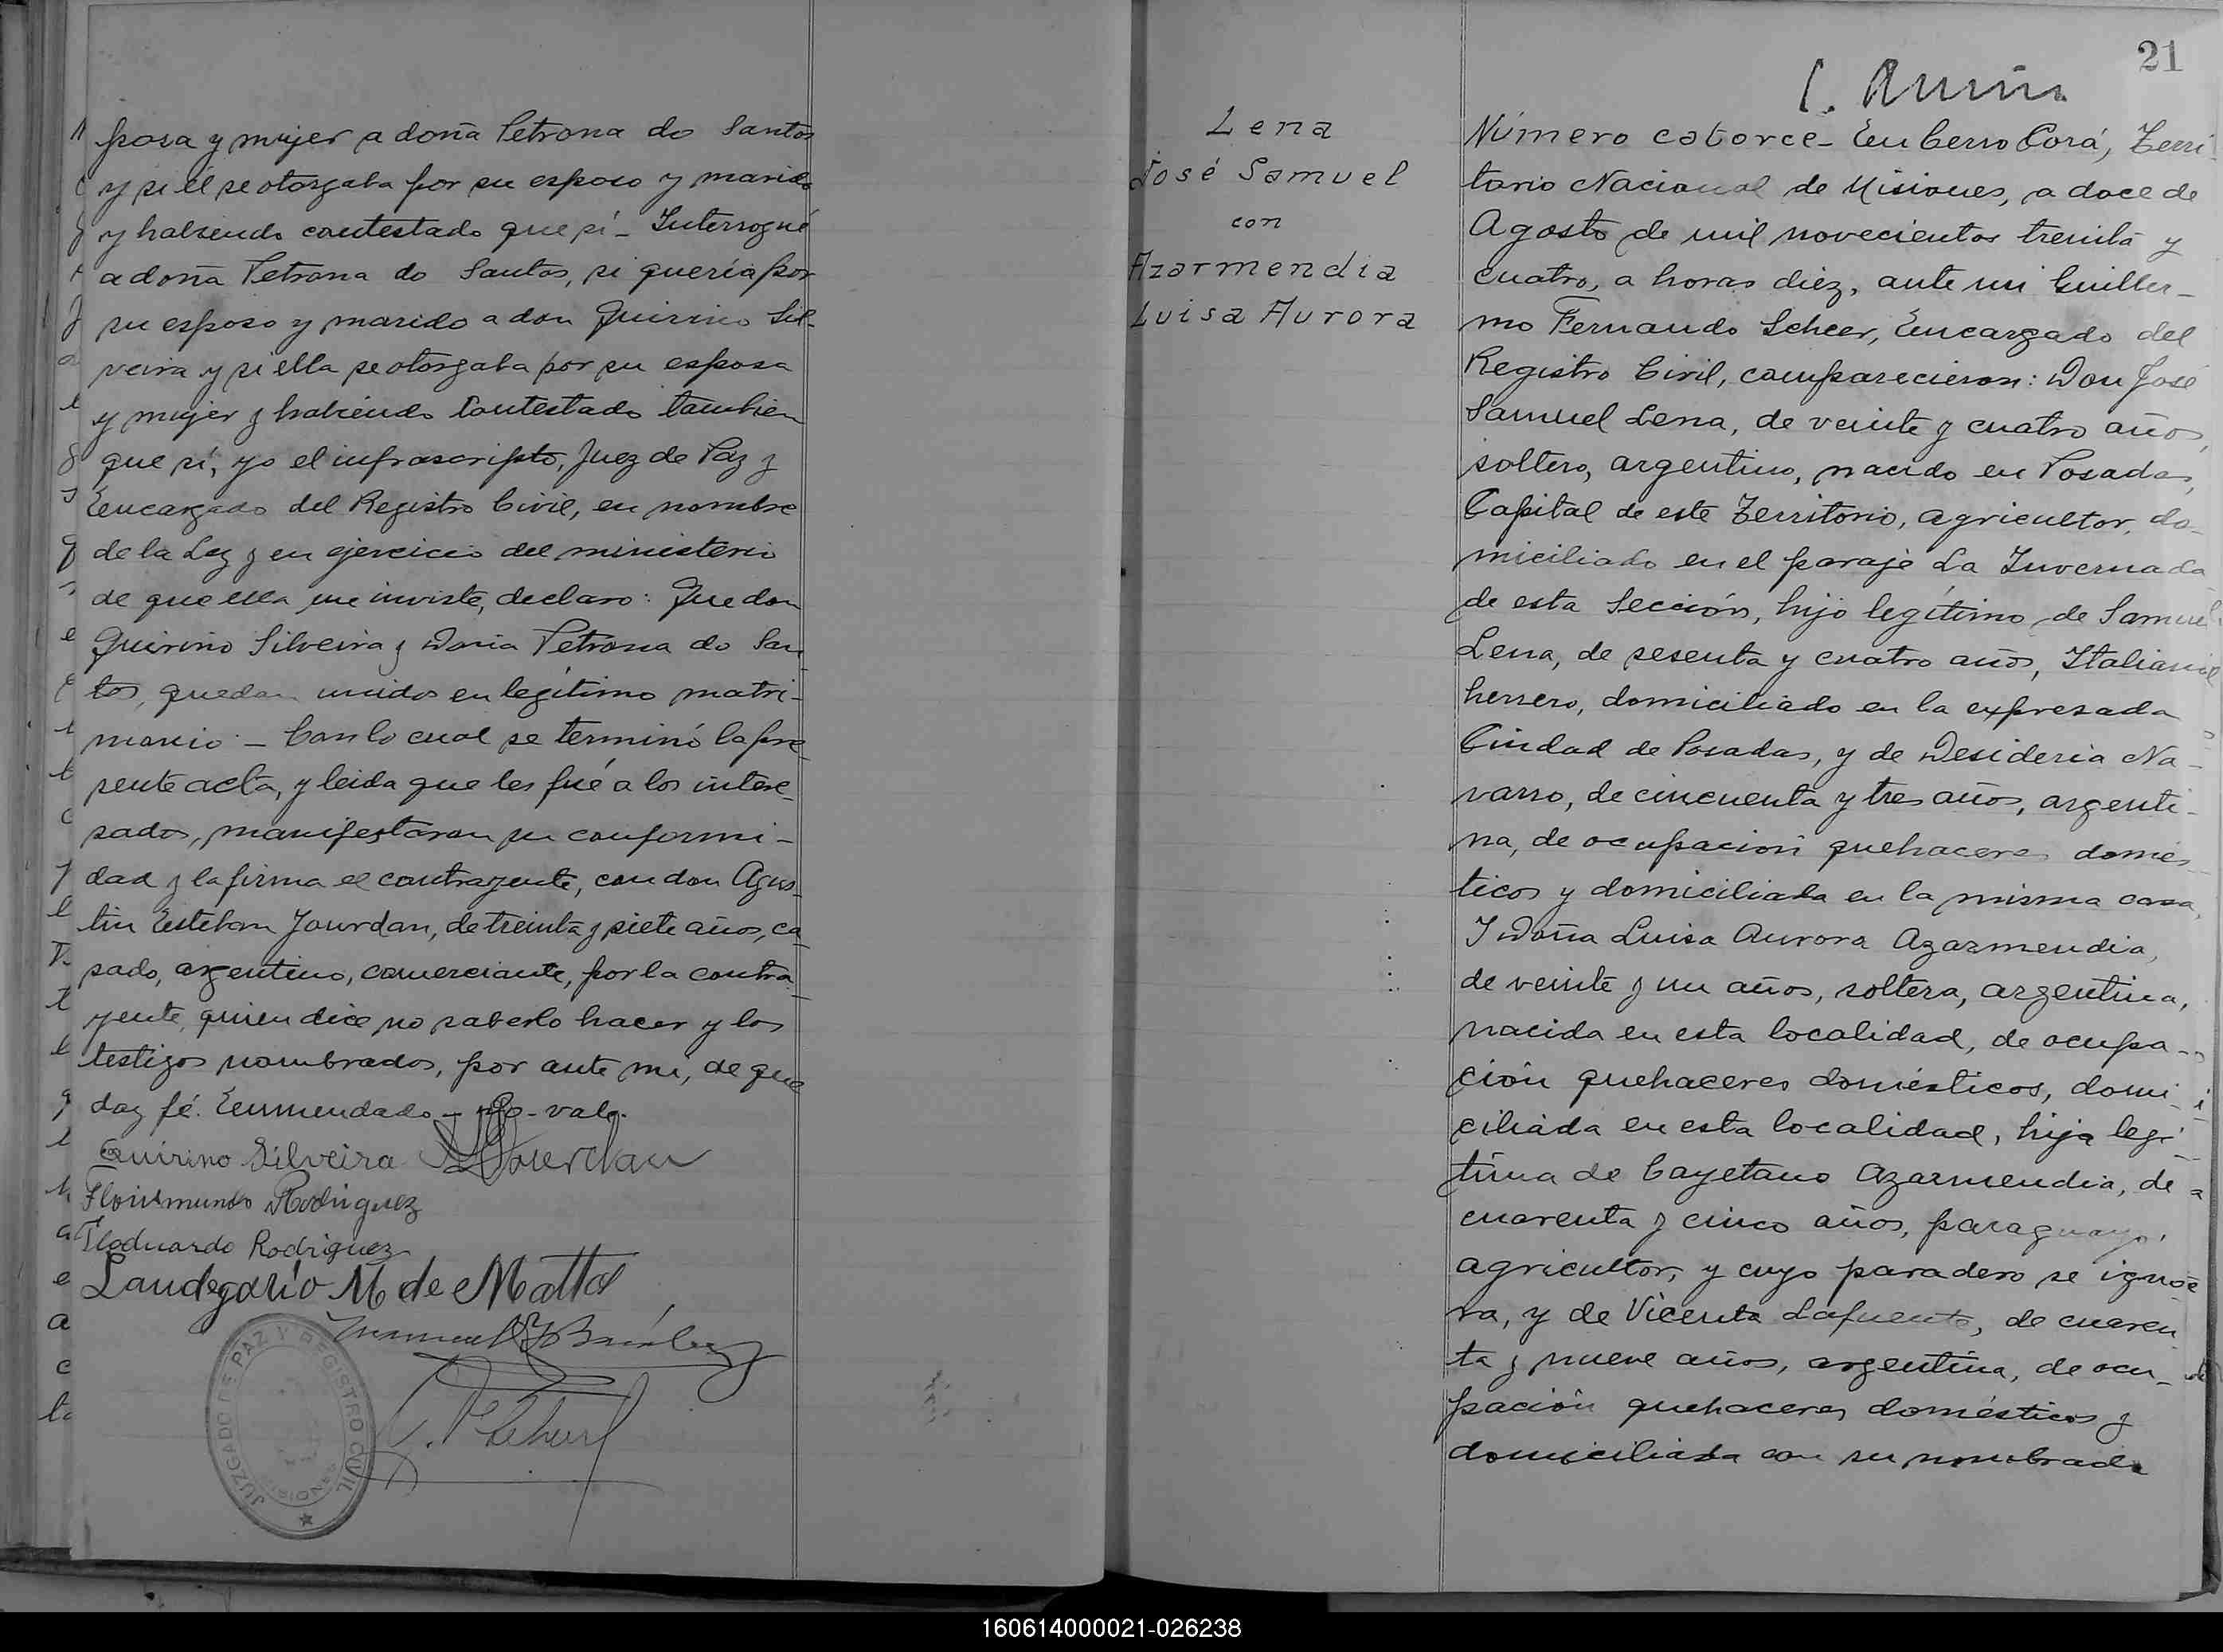 posa y mujer a doña Petrona do Santos
y si él se otorgaba por su esposo y marido
y habiendo contestado que sí_ Interrogué
a doña Petrona do Santos, si quería por
su esposo y marido a don Quirino Sil-
veira y si ella se otorgaba por su esposa
y mujer y habiendo contestado tambien
que sí, yo el infrascripto, Juez de Paz y
Encargado del Registro Civil, en nombre
de la Ley y en ejercicio del ministerio
de que ella me inviste, declaro: Que don
Quirino Silveira y Doña Petrona do San-
tos, quedan unidos en legítimo matri-
monio _ Con lo cual se terminó la pre-
sente acta, y leida que les fué a los intere-
sados, manifestaron su conformi-
dad y la firma el contrayente, con don Agus-
tin Esteban Jourdan, de treinta y siete años, ca-
sado, argentino, comerciante, por la contra-
yente, quien dice no saberlo hacer y los
testigos nombrados, por ante mi, de que
doy fé. Enmendado - - vale.
Quirino Silveira Jourdan
Florismundo Rodriguez
Rodriguez
Laudegario M de Matto
JUZGADO DE PAZ Y REGISTRO CIVIL
21
Lena
José Samuel
con
Azarmendia
Luisa Aurora
Número catorce_ En Cerro Corá, Terri-
torio Nacional de Misiones, a doce de
Agosto de mil novecientos treinta y
cuatro, a horas diez, ante mi Guiller-
mo Fernando Scheer, Encargado del
Registro Civil, comparecieron: Don José
Samuel Lena, de veinte y cuatro años,
soltero, argentino, nacido en Posadas,
Capital de este Territorio, agricultor, do-
miciliado en el paraje La Invernada
de esta Sección, hijo legítimo de Samuel
Lena, de sesenta y cuatro años, Italiano,
herrero, domiciliado en la expresada
Ciudad de Posadas, y de Desideria Na-
varro, de cincuenta y tres años, argenti-
na, de ocupación quehaceres domés-
ticos y domiciliada en la misma casa,
Y Doña Luisa Aurora Azarmendia,
de veinte y un años, soltera, argentina,
nacida en esta localidad, de ocupa-
ción quehaceres domésticos, domi-
ciliada en esta localidad, hija legí-
tima de Cayetano Azarmendia, de
cuarenta y cinco años, paraguayo,
agricultor, y cuyo paradero se igno-
ra, y de Vicenta Lafuente, de cuaren-
ta y nueve años, argentina, de ocu-
pación quehaceres domésticos y
domiciliada con su nombrada
160614000021-026238